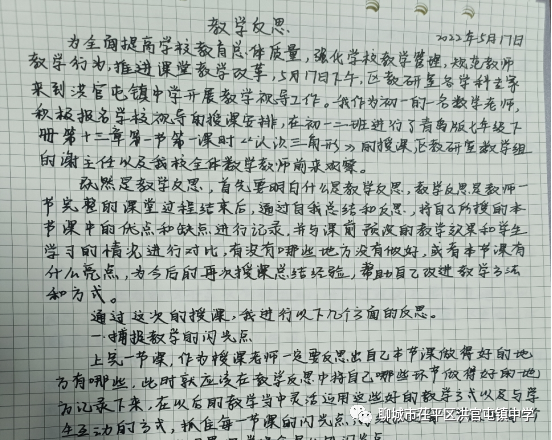 教学反思
2022年5月17日
为全面提高学校教育总体质量,强化学校教学管理,规范教师
教学行为,推进课堂教学改革,5月17日下午,区教研室各学科专家
来到洪官屯镇中学开展教学视导工作。我作为初一的一名数学老师,
积极报名学校视导的授课安排,在初一二班进行了青岛版七年级下
册第十三章第一节第一课时《认识三角形》的授课,区教研室数学组
的谢主任以及我校全体数学教师前来观摩。
既然是教学反思,首先要明白什么是教学反思,教学反思是教师一
节完整的课堂过程结束后,通过自我总结和反思,将自己所授的本
节课中的优点和缺点进行记录,并与课前预设的教学效果和学生
学习的情况进行对比,有没有哪些地方没有做好,或有本节课有
什么亮点,为今后的再次授课总结经验,帮助自己改进教学方法
和方式。
通过这次的授课,我进行以下几个方面的反思。
一.捕捉教学的闪光点
上完一节课,作为授课老师一定要反思出自己本节课做得好的地
方有哪些,此时就应该在教学反思中将自己哪些环节做得好的地
方记录下来,在以后的教学当中灵活运用这些好的教学方式以及与学
生互动的方式,抓住每一节课的闪光点,
聊城市茌平区洪官屯镇中学